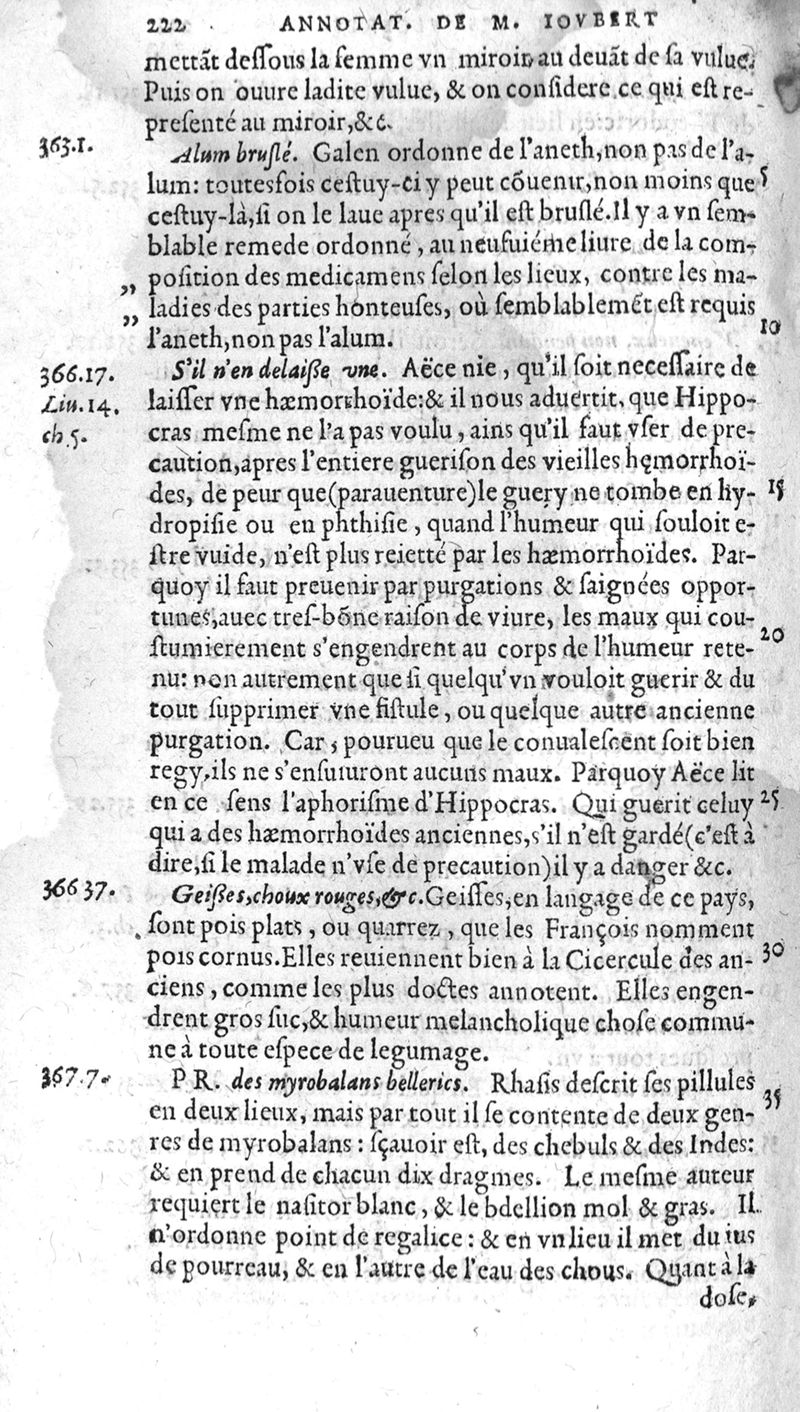 222 ANNOTAT. DE M. IOVBERT
mettãt deſſous la femme vn miroir au deuãt de ſa vulue.
Puis on ouure ladite vulue, & on conſidere ce qui eſt re-
preſenté au miroir, &c.
363.1. Alum bruſlé. Galen ordonne de l'aneth, non pas de l'a-
lum: toutesfois ceſtuy-ci y peut cõuenir, non moins que 5
ceſtuy-là, ſi on le laue apres qu'il eſt bruſlé. Il y a vn ſem-
blable remede ordonné, au neufuiéme liure de la com-
„ poſition des medicamens ſelon les lieux, contre les ma-
„ ladies des parties honteuſes, où ſemblablemẽt eſt requis
l'aneth, non pas l'alum. 10
366.17. S'il n'en delaiſſe vne. Aëce nie, qu'il ſoit neceſſaire de
Liu.14. laiſſer vne hæmorrhoïde: & il nous aduertit, que Hippo-
ch.5. cras meſme ne l'a pas voulu, ains qu'il faut vſer de pre-
caution, apres l'entiere gueriſon des vieilles hęmorrhoï-
des, de peur que (parauenture) le guery ne tombe en hy- 15
dropiſie ou en phthiſie, quand l'humeur qui ſouloit e-
ſtre vuide, n'eſt plus reietté par les hæmorrhoïdes. Par-
quoy il faut preuenir par purgations & ſaignées oppor-
tunes, auec treſ-bõne raiſon de viure, les maux qui cou-
ſtumierement s'engendrent au corps de l'humeur rete- 20
nu: non autrement que ſi quelqu'vn vouloit guerir & du
tout ſupprimer vne fiſtule, ou quelque autre ancienne
purgation. Car, pourueu que le conualeſcent ſoit bien
regy, ils ne s'enſuiuront aucuns maux. Parquoy Aëce lit
en ce ſens l'aphoriſme d'Hippocras. Qui guerit celuy 25
qui a des hæmorrhoïdes anciennes, s'il n'eſt gardé (c'eſt à
dire, ſi le malade n'vſe de precaution) il y a danger &c.
366 37. Geiſſes, choux rouges, &c. Geiſſes, en langage de ce pays,
ſont pois plats, ou quarrez, que les François nomment
pois cornus. Elles reuiennent bien à la Cicercule des an- 30
ciens, comme les plus doctes annotent. Elles engen-
drent gros ſuc, & humeur melancholique choſe commu-
ne à toute eſpece de legumage.
367.7. PR. des myrobalans bellerics. Rhaſis deſcrit ſes pillules
en deux lieux, mais par tout il ſe contente de deux gen- 35
res de myrobalans: ſçauoir eſt, des chebuls & des Indes:
& en prend de chacun dix dragmes. Le meſme auteur
requiert le naſitor blanc, & le bdellion mol & gras. Il
n'ordonne point de regalice: & en vn lieu il met du ius
de pourreau, & en l'autre de l'eau des chous. Quant à la
doſe,